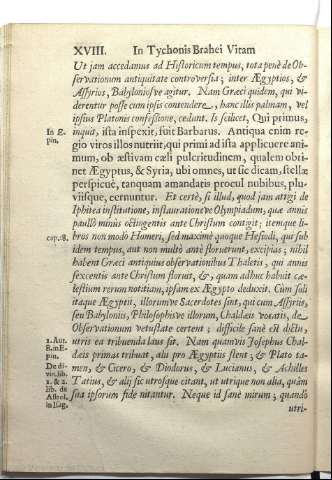 XVIII. In Tychonis Brahei Vitam
Ut jam accedamus ad Historicum tempus, tota penè de Ob-
servationum antiquitate controversia; inter Ægyptios, &
Assyrios, Babyloniosve agitur. Nam Græci quidem, qui vi-
derentur posse cum ipsis contendere, hanc illis palmam, vel
ipsius Platonis confessione, cedunt. Is scilicet, Qui primus,
In E-
pin.
inquit, ista inspexit, fuit Barbarus. Antiqua enim re-
gio viros illos nutriit, qui primi ad ista applicuere ani-
mum, ob æstivam cæli pulcritudinem, qualem obti-
net Ægyptus, & Syria, ubi omnes, ut sic dicam, stellæ
perspicuè, tanquam amandatis procul nubibus, plu-
viisque, cernuntur. Et certè, si illud, quod jam attigi de
Iphitea institutione, instaurationeve Olympiadum, quæ annis
paullò minùs octingentis ante Christum contigit; itemque li-
cap. 8.
bros non modò Homeri, sed maximè quoque Hesiodi, qui sub
idem tempus, aut non multò antè floruerunt, excipias; nihil
habent Græci antiquius observationibus Thaletis, qui annis
sexcentis ante Christum floruit, &, quam adhuc habuit cæ-
lestium rerum notitiam, ipsam ex Ægypto deduxit. Cùm soli
itaque Ægyptii, illorumve Sacerdotes sint, qui cum Assyriis,
seu Babyloniis, Philosophisve illorum, Chaldæis vocatis, de
Observationum vetustate certent; difficile sanè est dictu,
1. Ant.
8. in E-
pin.
De di-
vin. lib.
1. & 2.
lib. de
Astrol.
in Isag.
utris ea tribuenda laus sit. Nam quamvis Josephus Chal-
dæis primas tribuat, alii pro Ægyptiis stent; & Plato ta-
men, & Cicero, & Diodorus, & Lucianus, & Achilles
Tatius, & alii sic utrosque citant, ut utrique non aliâ, quàm
suâ ipsorum fide nitantur. Neque id sanè mirum; quandò
utri-